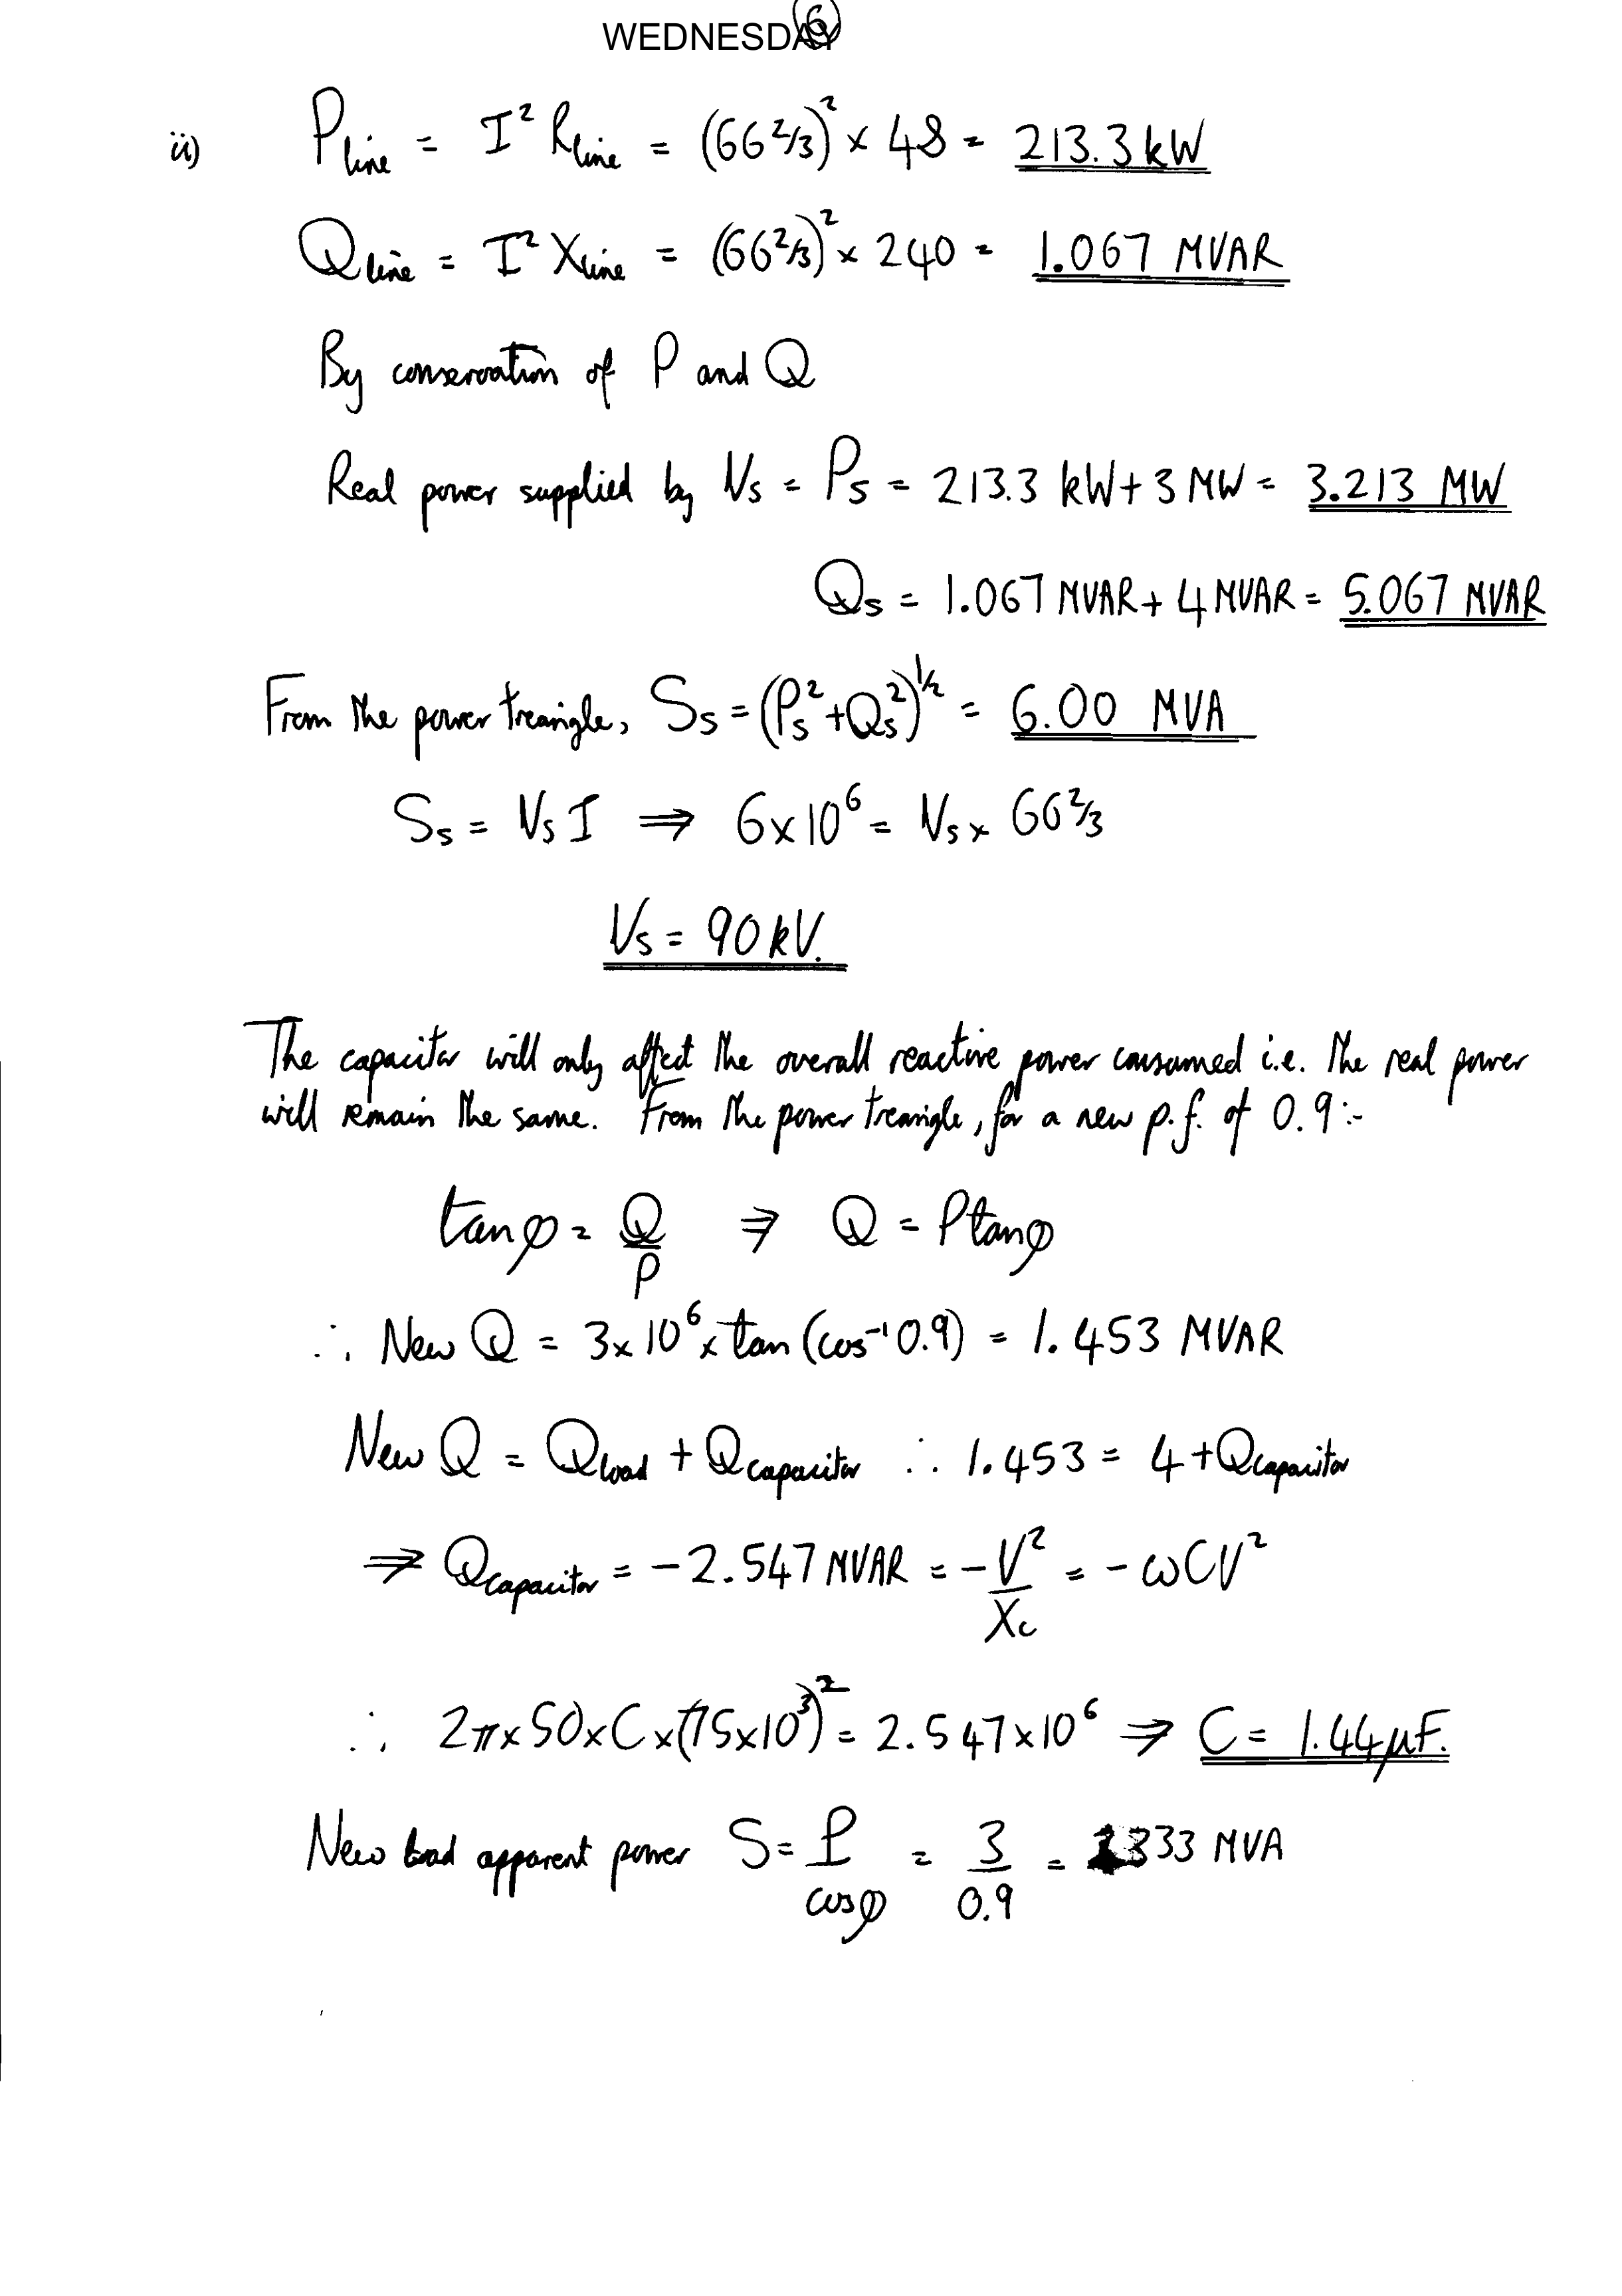 WEDNESDAY 6
ii) P_line = I² R_line = (66 2/3)² × 48 = 213.3 kW
Q_line = I² X_line = (66 2/3)² × 240 = 1.067 MVAR
By conservation of P and Q
Real power supplied by Vs = Ps = 213.3 kW + 3 MW = 3.213 MW
Qs = 1.067 MVAR + 4 MVAR = 5.067 MVAR
From the power treangle, Ss = (Ps² + Qs²)^1/2 = 6.00 MVA
Ss = Vs I ⇒ 6×10⁶ = Vs × 66 2/3
Vs = 90 kV.
The capacitor will only affect the overall reactive power consumed i.e. the real power
will remain the same. From the power treangle, for a new p.f. of 0.9:-
tanφ = Q/P ⇒ Q = Ptanφ
∴ New Q = 3×10⁶ × tan(cos⁻¹0.9) = 1.453 MVAR
New Q = Q_load + Q_capacitor ∴ 1.453 = 4 + Q_capacitor
⇒ Q_capacitor = -2.547 MVAR = -V²/Xc = -ωCV²
∴ 2π×50×C×(75×10³)² = 2.547×10⁶ ⇒ C = 1.44μF.
New load apparent power S = P/cosφ = 3/0.9 = 333 MVA